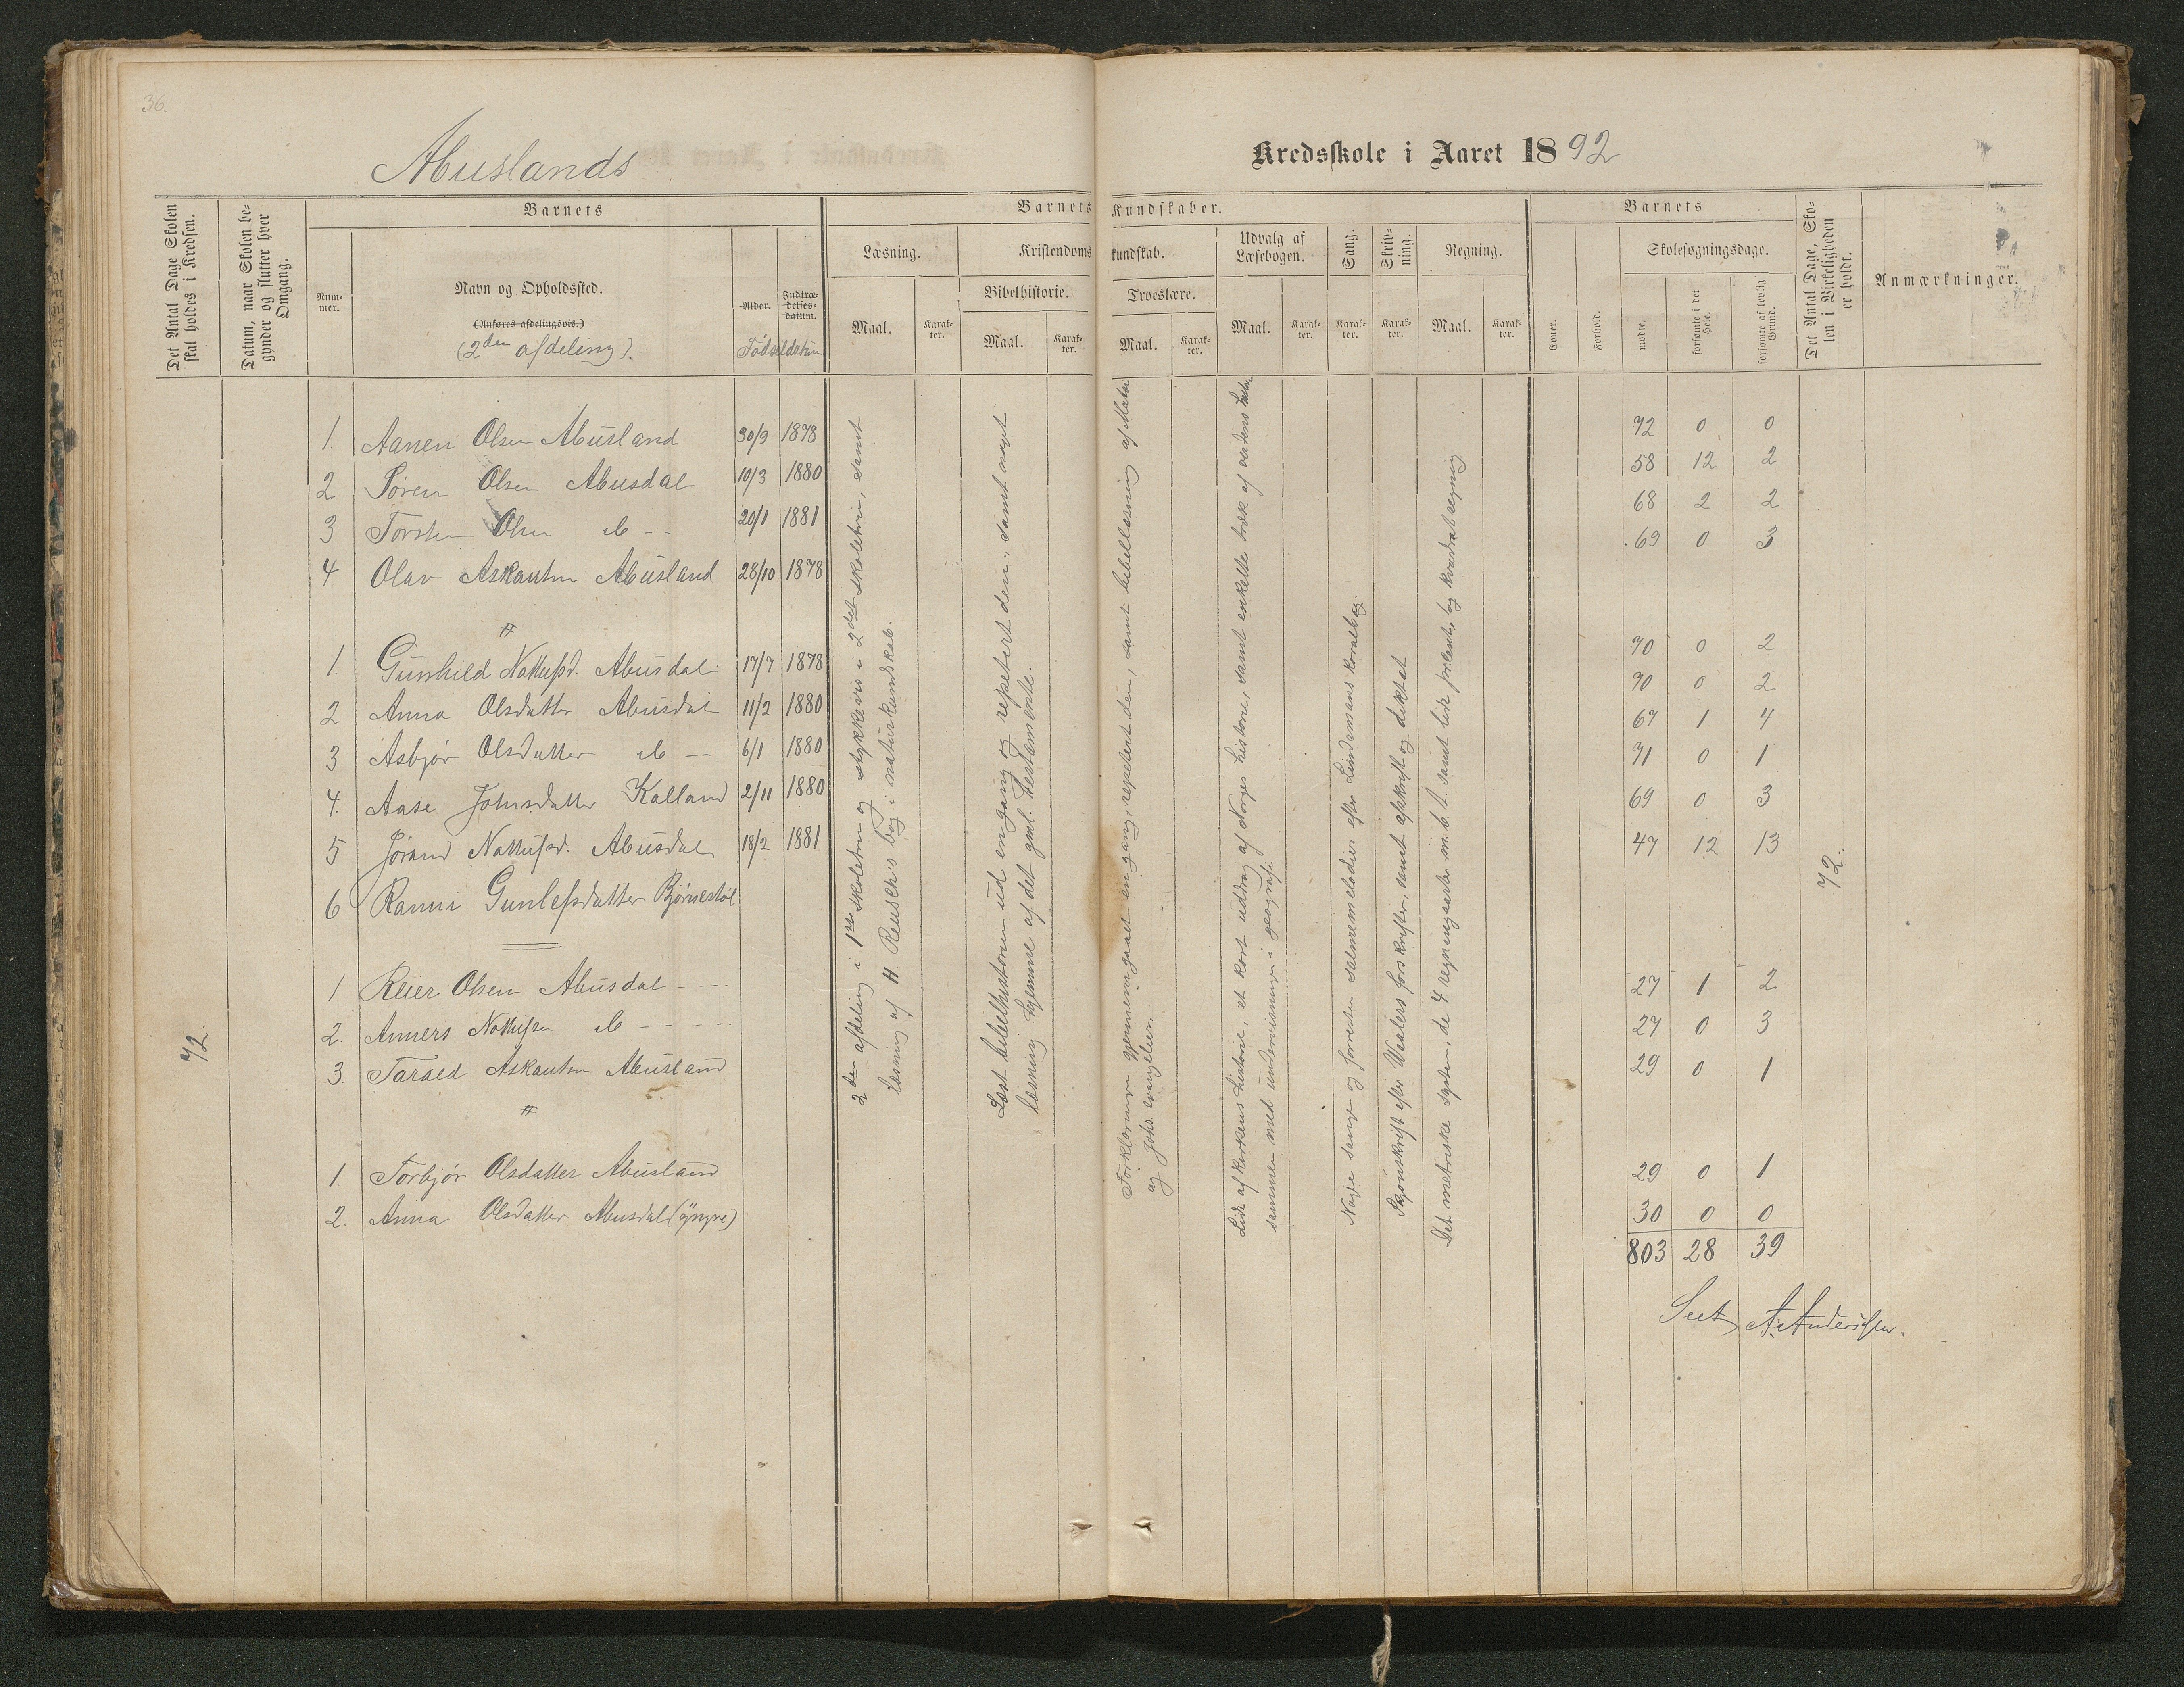 36.
Abuslands
Kredsskole i Aaret 1892
Det Antal Dage Skolen skal holdes i Kredsen.
Datum, naar Skolen begynder og slutter hver Omgang.
Barnets
Num-mer.
Navn og Opholdssted.
(Anføres afdelingsvis.)
(2den afdeling).
Alder.
Indtræ-delses-datum.
Fødselsdatum
Barnets Kundskaber.
Læsning.
Maal.
Karak-ter.
Kristendomskundskab.
Bibelhistorie.
Maal.
Karak-ter.
Troeslære.
Maal.
Karak-ter.
Udvalg af Læsebogen.
Maal.
Karak-ter.
Sang.
Karak-ter.
Skriv-ning.
Karak-ter.
Regning.
Maal.
Karak-ter.
Barnets
Evner.
Forhold.
Skolesøgningsdage.
mødte.
forsømte i det Hele.
forsømte af lovlig Grund.
Det Antal Dage, Skolen i Virkeligheden er holdt.
Anmærkninger.
1. Aanen Olsen Abusland 30/9 1878 72 0 0
2 Søren Olsen Abusdal 10/3 1880 58 12 2
3 Torsten Olsen do -- 20/1 1881 68 2 2
4 Olav Askautsn Abusland 28/10 1878 69 0 3
1. Gunhild Nottufsd. Abusdal 17/7 1878 70 0 2
2 Anna Olsdatter Abusdal 11/2 1880 70 0 2
3 Asbjør Olsdatter do -- 6/1 1880 67 1 4
4. Aase Johnsdatter Kalland 2/11 1880 71 0 1
5 Jørand Nottufsd. Abusdal 18/2 1881 69 0 3
6 Ranni Gunlefsdatter Bjørnestøl 47 12 13
1 Reier Olsen Abusdal ---- 27 1 2
2. Anners Nottufsen do ---- 27 0 3
3. Tarald Askautsn Abusland 29 0 1
1 Torbjør Olsdatter Abusland 29 0 1
2. Anna Olsdatter Abusdal (yngre) 30 0 0
803 28 39
72.
72.
2den afdeling i 1ste skoletrin og stykkevis i 2det skoletrin, samt
læsning af H. Reusch's bog i naturkundskab.
Læst bibelhistorien ud en gang og repetert den, samt noget
læsning hjemme af det gml. testamente.
Forklaringen gjennemgaaet en gang, repetert den, samt bibellæsning af Mattæi
og Johs. evangelier.
Lidt af kirkens historie, et kort uddrag af Norges historie, samt enkelte træk af verdens
sammen med undervisningen i geografi.
Nogle sange og forresten salmemelodier efter Lindemans koralbog.
Skjønskrift efter Waalers forskrifter, samt afskrift og diktat
Det metriske system, de 4 regningsarter m. b. t. samt lidt procent og kvadratregning
Seet A. Anderssen.